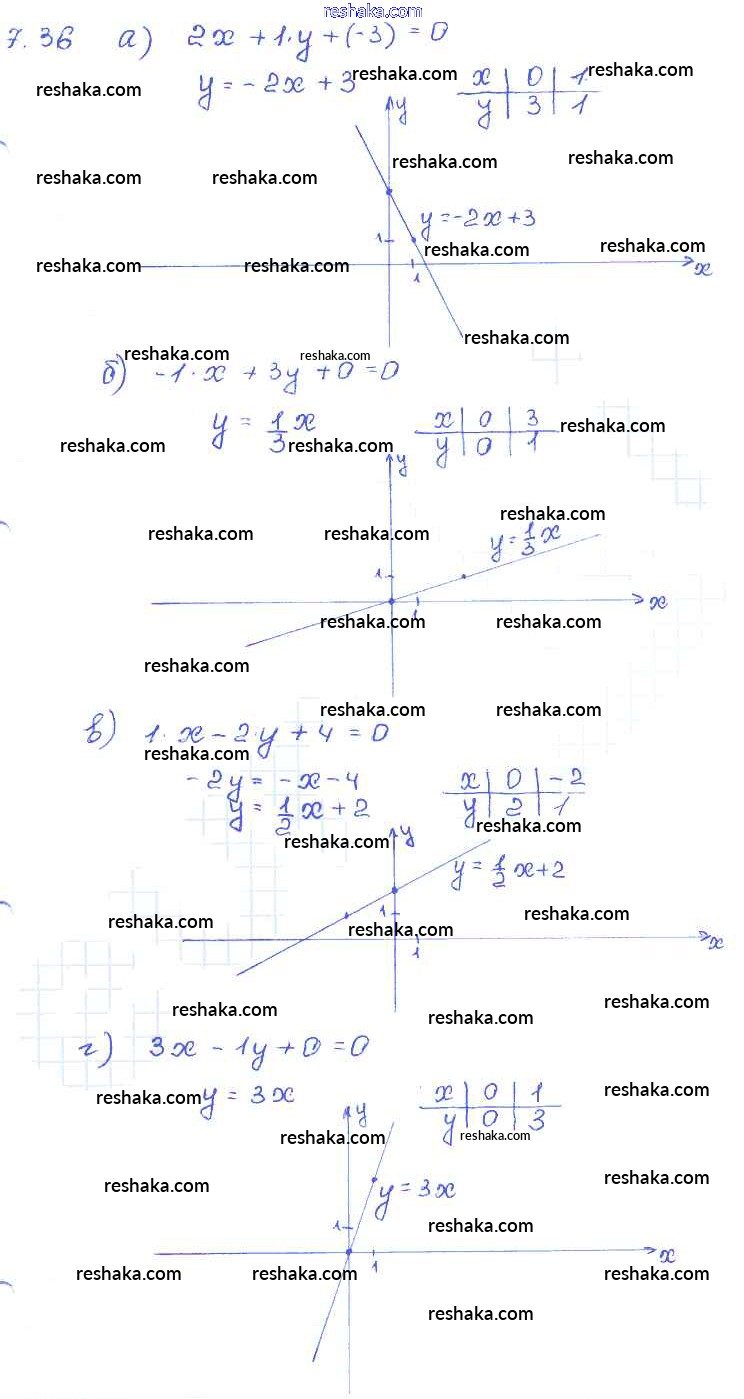 reshaka.com
7.36 а) 2x + 1·y + (-3) = 0
reshaka.com y = -2x + 3 reshaka.com x | 0 | 1 reshaka.com
y | 3 | 1
y
reshaka.com reshaka.com reshaka.com reshaka.com
y = -2x + 3
1 reshaka.com reshaka.com
reshaka.com reshaka.com 1 x
reshaka.com
reshaka.com reshaka.com
б) -1·x + 3y + 0 = 0
y = 1/3 x x | 0 | 3 reshaka.com
reshaka.com reshaka.com y | 0 | 1
y
reshaka.com
reshaka.com reshaka.com y = 1/3 x
1
1 x
reshaka.com reshaka.com
reshaka.com
reshaka.com reshaka.com
в) 1·x - 2·y + 4 = 0
reshaka.com
-2y = -x - 4 x | 0 | -2
y = 1/2 x + 2 y | 2 | 1
reshaka.com
reshaka.com y
y = 1/2 x + 2
1 reshaka.com
reshaka.com reshaka.com
1 x
reshaka.com reshaka.com reshaka.com
г) 3x - 1y + 0 = 0
reshaka.com y = 3x x | 0 | 1 reshaka.com
y | 0 | 3
y
reshaka.com reshaka.com
reshaka.com y = 3x reshaka.com
1 reshaka.com
x
1
reshaka.com reshaka.com reshaka.com
reshaka.com